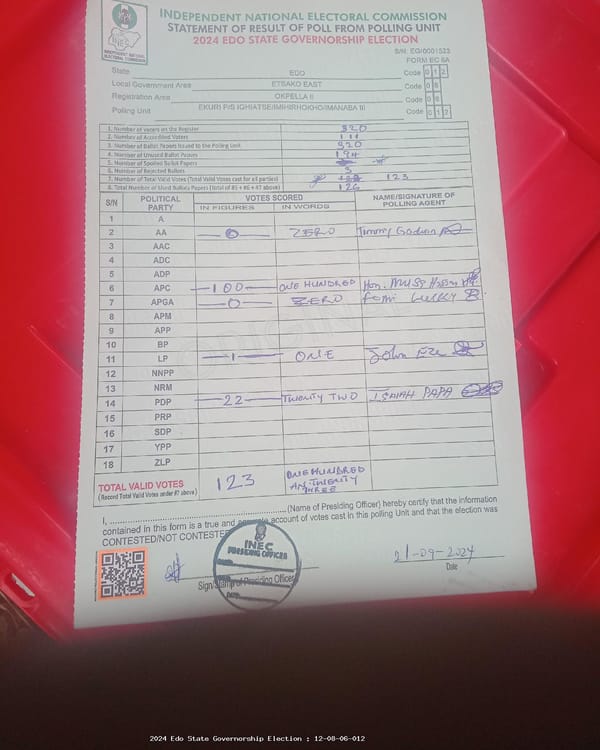 INDEPENDENT NATIONAL ELECTORAL COMMISSION
STATEMENT OF RESULT OF POLL FROM POLLING UNIT
2024 EDO STATE GOVERNORSHIP ELECTION
INEC
INDEPENDENT NATIONAL ELECTORAL COMMISSION
S/N: EG/0001523
FORM EC 8A
State EDO Code 0 1 2
Local Government Area ETSAKO EAST Code 0 8
Registration Area OKPELLA II Code 0 6
Polling Unit EKURI P/S IGHIATSE/IMIHIRHOKHO/IMANABA III Code 0 1 2
1. Number of Voters on the Register 320
2. Number of Accredited Voters
3. Number of Ballot Papers Issued to the Polling Unit 320
4. Number of Unused Ballot Papers 194
5. Number of Spoiled Ballot Papers
6. Number of Rejected Ballots 3
7. Number of Total Valid Votes (Total Valid Votes cast for all parties) 123
8. Total Number of Used Ballots Papers (Total of #5 + #6 + #7 above) 126
S/N POLITICAL PARTY VOTES SCORED IN FIGURES IN WORDS NAME/SIGNATURE OF POLLING AGENT
1 A
2 AA 0 ZERO Timmy Godwin
3 AAC
4 ADC
5 ADP
6 APC 100 ONE HUNDRED Hon. Musa Hassan
7 APGA 0 ZERO Lucky
8 APM
9 APP
10 BP
11 LP 1 ONE John Eze
12 NNPP
13 NRM
14 PDP 22 TWENTY TWO ISAIAH PAPA
15 PRP
16 SDP
17 YPP
18 ZLP
TOTAL VALID VOTES 123 ONE HUNDRED AN TWENTY THREE
(Record Total Valid Votes under #7 above)
I, ......................................................(Name of Presiding Officer) hereby certify that the information
contained in this form is a true and accurate account of votes cast in this polling Unit and that the election was
CONTESTED/NOT CONTESTED
INEC
PRESIDING OFFICER
DATE
21-09-2024
Sign/Stamp of Presiding Officer
Date
2024 Edo State Governorship Election : 12-08-06-012